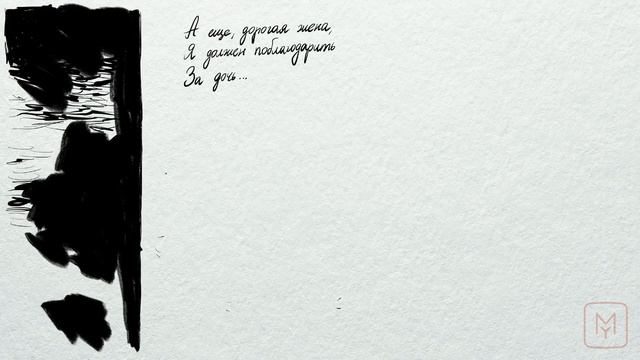 А еще, дорогая жена,
Я должен поблагодарить
За дочь...
MY